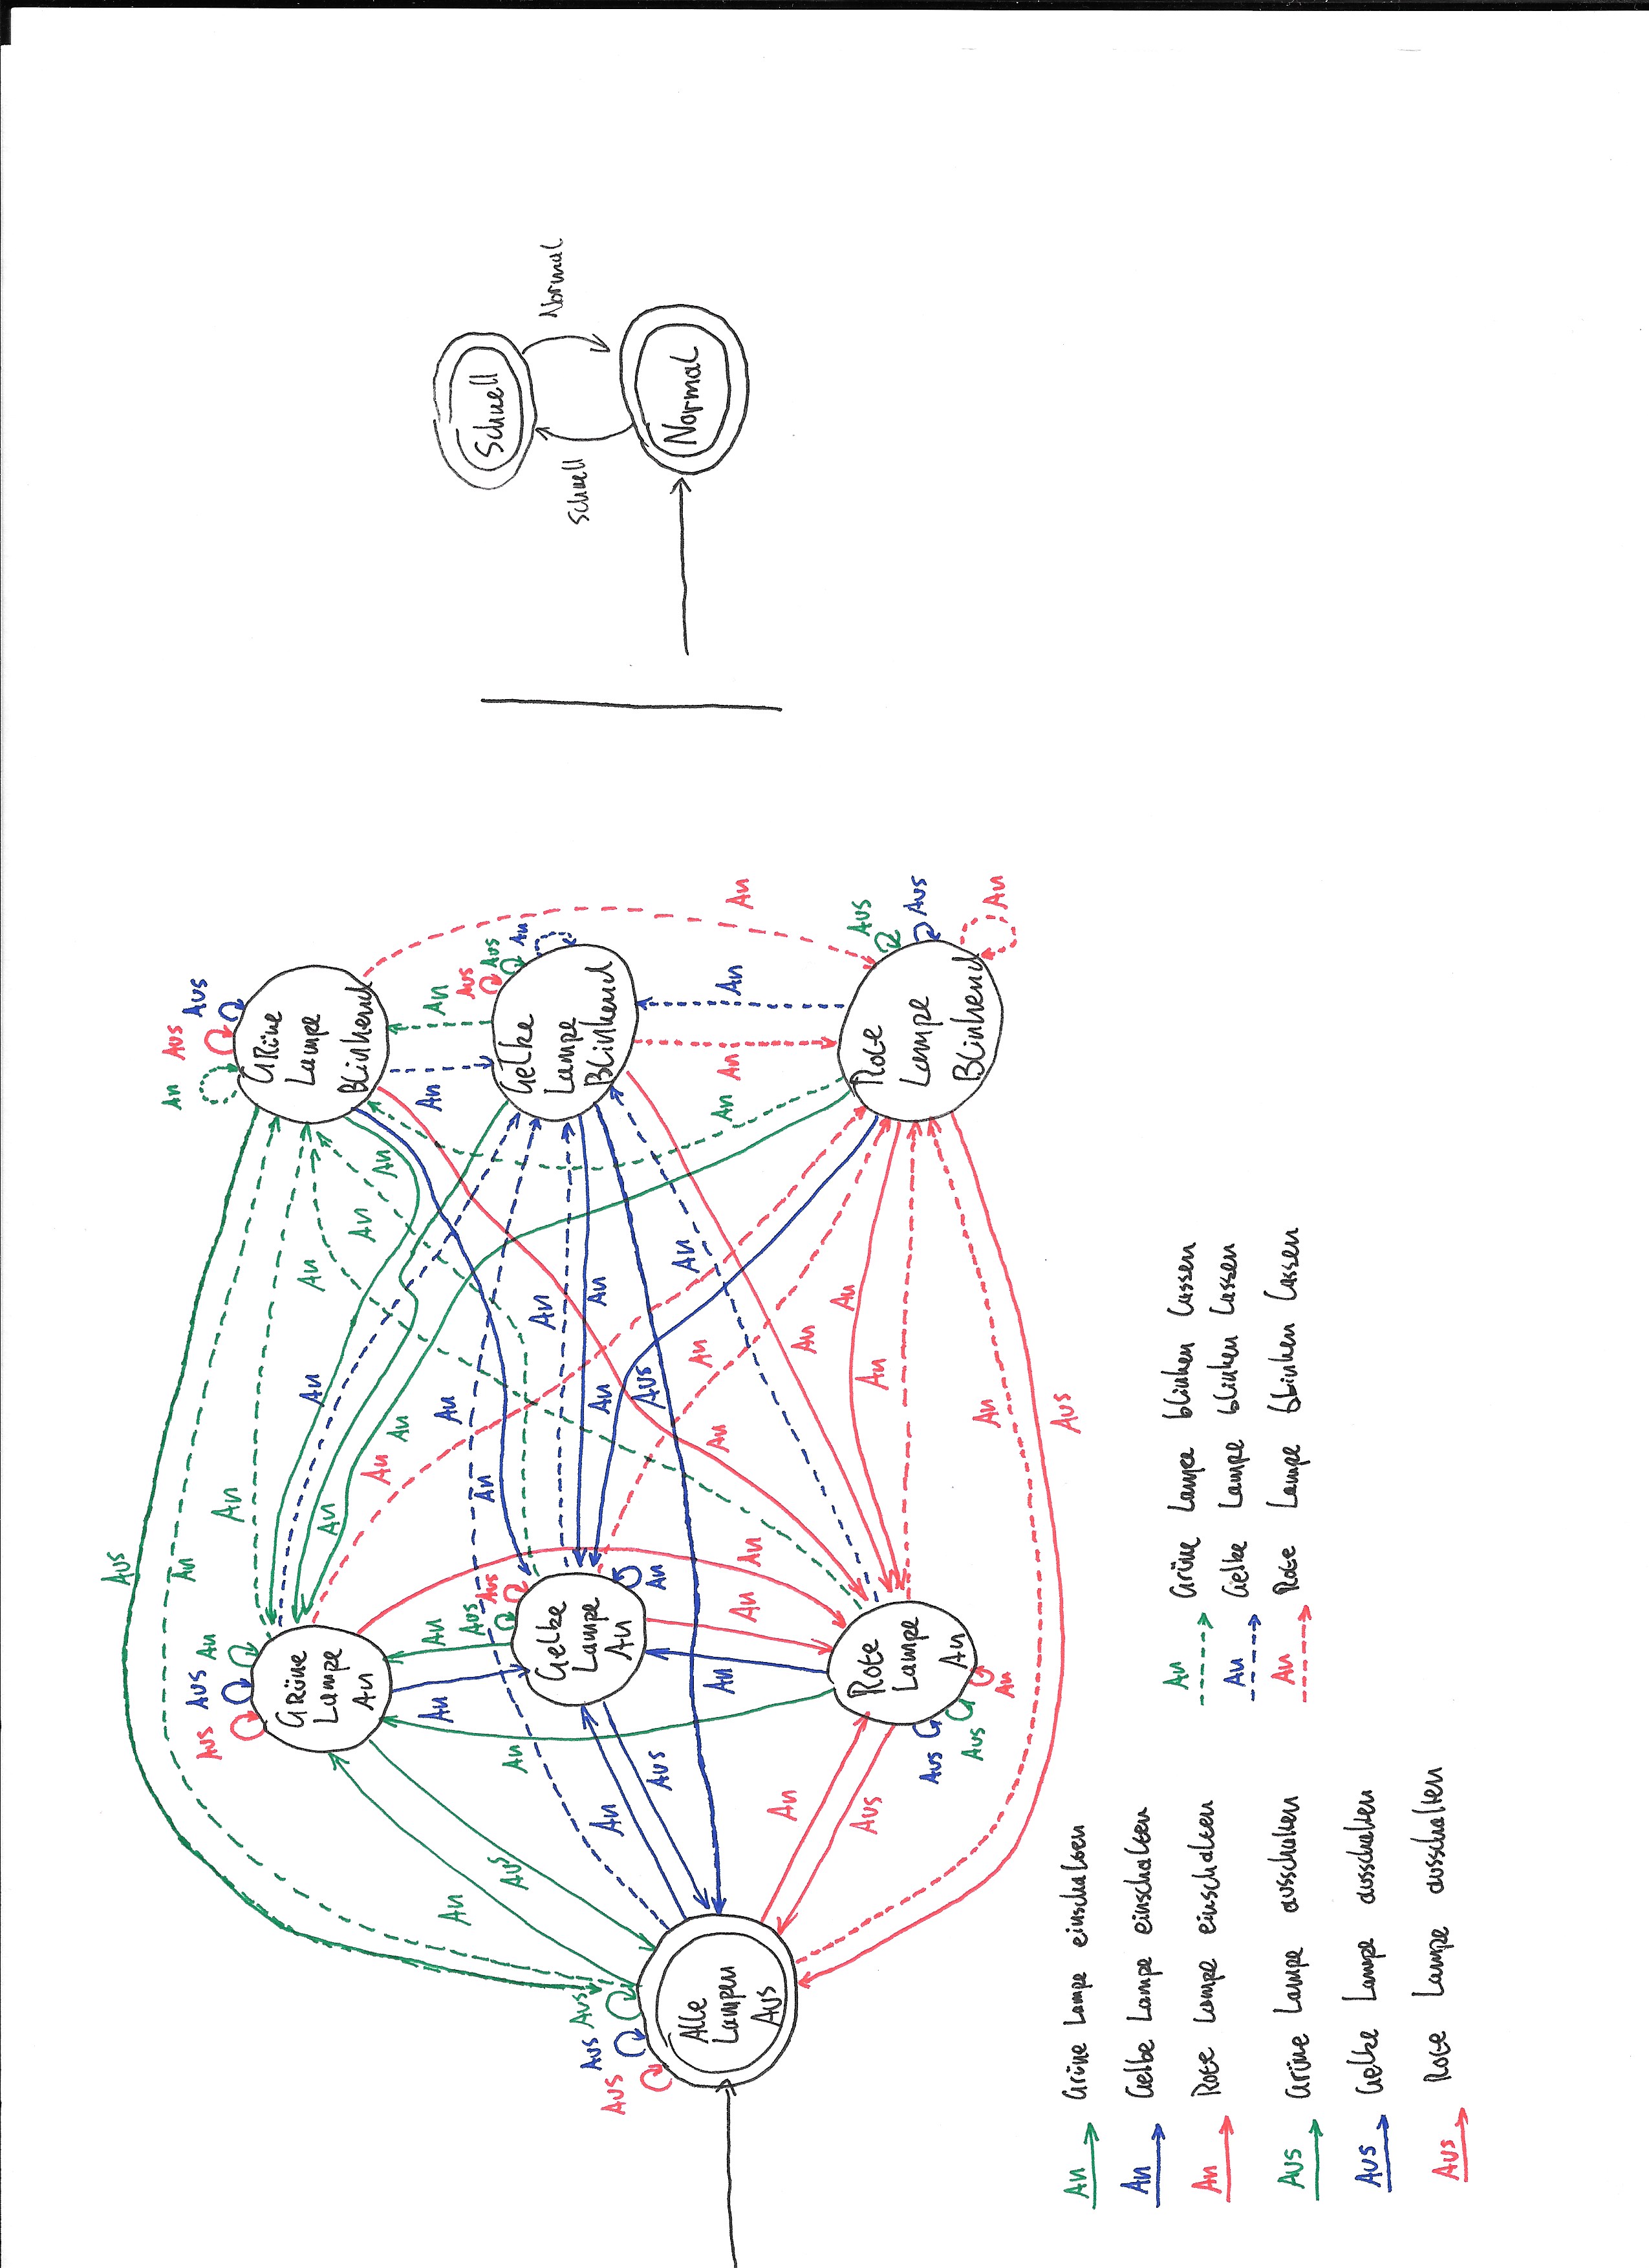 Aus
An
An
Aus
Aus
Aus
An
Aus
Aus
An
Grüne
Lampe
An
Grüne
Lampe
Blinkend
An
An
An
An
An
An
An
An
An
Aus
An
An
An
An
An
An
An
Aus
Aus
An
An
Aus
Aus
An
Gelbe
Lampe
An
Gelbe
Lampe
Blinkend
An
An
An
An
An
Aus
Aus
Aus
Aus
An
Aus
Alle
Lampen
Aus
An
An
An
An
An
An
An
An
An
An
An
An
Aus
An
An
An
Rote
Lampe
An
Rote
Lampe
Blinkend
Aus
Aus
An
Aus
Aus
An
An
Aus
Schnell
Schnell
Normal
Normal
An Grüne Lampe einschalten
An Gelbe Lampe einschalten
An Rote Lampe einschalten
Aus Grüne Lampe ausschalten
Aus Gelbe Lampe ausschalten
Aus Rote Lampe ausschalten
An Grüne Lampe blinken lassen
An Gelbe Lampe blinken lassen
An Rote Lampe blinken lassen